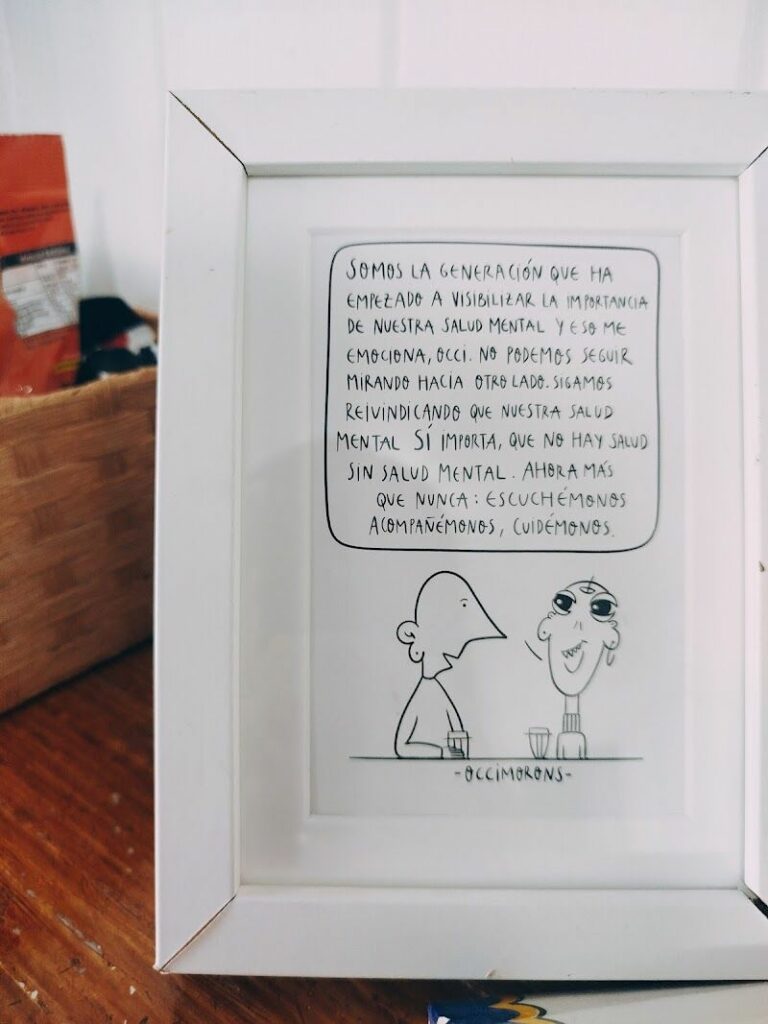 SOMOS LA GENERACIÓN QUE HA
EMPEZADO A VISIBILIZAR LA IMPORTANCIA
DE NUESTRA SALUD MENTAL Y ESO ME
EMOCIONA, OCCI. NO PODEMOS SEGUIR
MIRANDO HACIA OTRO LADO. SIGAMOS
REIVINDICANDO QUE NUESTRA SALUD
MENTAL SÍ IMPORTA, QUE NO HAY SALUD
SIN SALUD MENTAL. AHORA MÁS
QUE NUNCA: ESCUCHÉMONOS
ACOMPAÑÉMONOS, CUIDÉMONOS.
-OCCIMORONS-